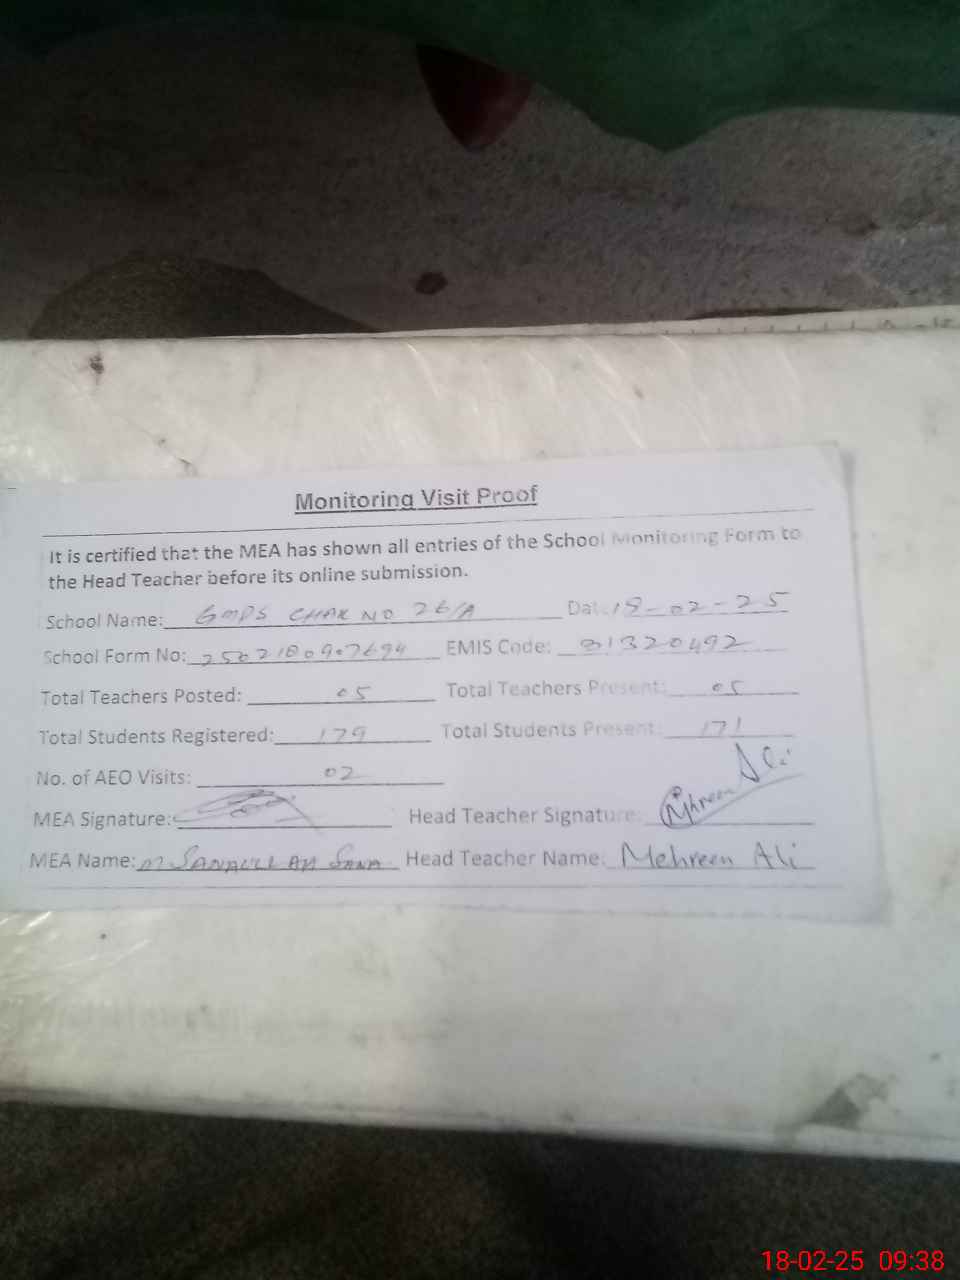 Monitoring Visit Proof
It is certified that the MEA has shown all entries of the School Monitoring Form to
the Head Teacher before its online submission.
School Name: GMPS CHAK NO 26/A Date: 18-02-25
School Form No: 2502180907694 EMIS Code: 31320492
Total Teachers Posted: 05 Total Teachers Present: 05
Total Students Registered: 179 Total Students Present: 171
No. of AEO Visits: 02
MEA Signature: Head Teacher Signature: Mehreen Ali
MEA Name: M SANAULLAH SANA Head Teacher Name: Mehreen Ali
18-02-25 09:38